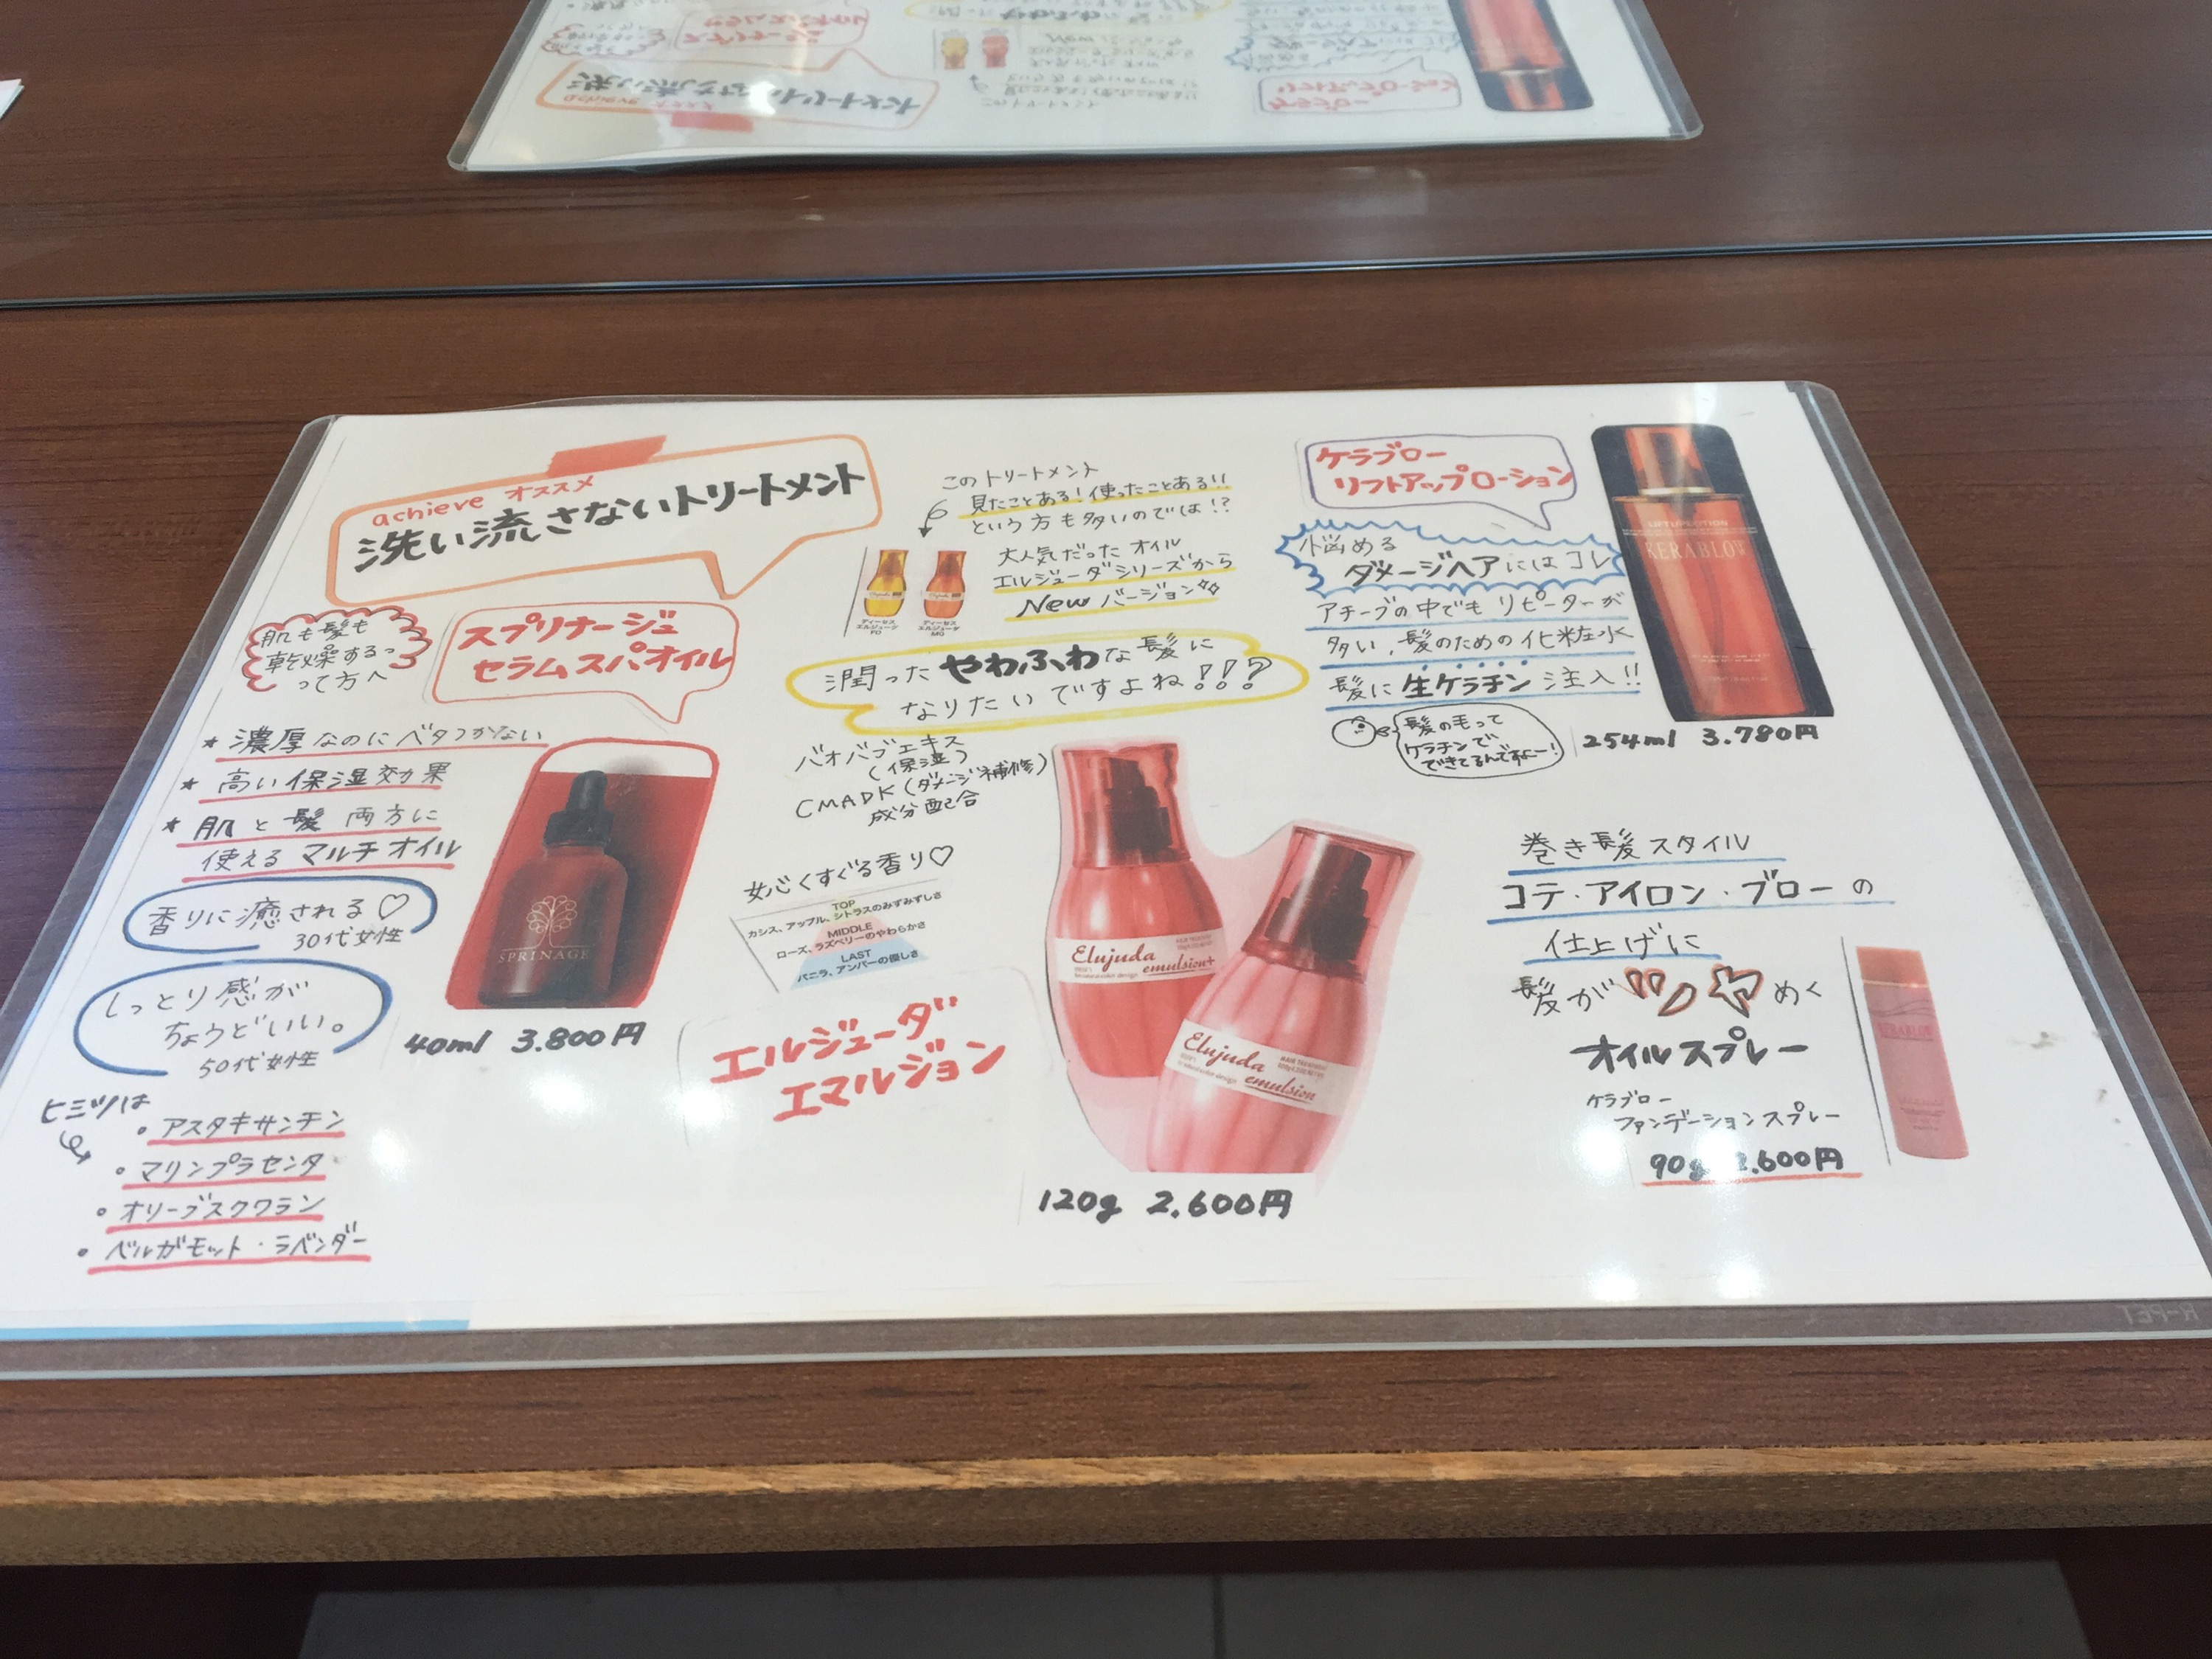 achieve オススメ
洗い流さないトリートメント
肌も髪も
乾燥するっ
って方へ
スプリナージュ
セラムスパオイル
★ 濃厚なのにベタつかない
★ 高い保湿効果
★ 肌と髪両方に
使えるマルチオイル
香りに癒される♡
30代女性
しっとり感が
ちょうどいい。
50代女性
SPRINAGE
40ml 3.800円
ヒミツは
・アスタキサンチン
・マリンプラセンタ
・オリーブスクワラン
・ベルガモット・ラベンダー
このトリートメント
見たことある!使ったことある!!
という方も多いのでは!?
大人気だったオイル
エルジューダシリーズから
Newバージョン
ディーセス
エルジューダ
FO
ディーセス
エルジューダ
MO
潤ったやわふわな髪に
なりたいですよね!!?
バオバブエキス
(保湿)
CMADK(ダメージ補修)
成分配合
女心くすぐる香り♡
TOP
カシス、アップル、シトラスのみずみずしさ
MIDDLE
ローズ、ラズベリーのやわらかさ
LAST
バニラ、アンバーの優しさ
エルジューダ
エマルジョン
Elujuda
emulsion+
Elujuda
emulsion
120g 2.600円
ケラブロー
リフトアップローション
悩める
ダメージヘアにはコレ
アチーブの中でもリピーターが
多い、髪のための化粧水
髪に生ケラチン注入!!
髪の毛って
ケラチンで
できてるんですよー!
LIFTUPLOTION
KERABLOW
254ml 3.780円
巻き髪スタイル
コテ・アイロン・ブローの
仕上げに
髪がツヤめく
オイルスプレー
ケラブロー
ファンデーションスプレー
90g .600円
R-PET